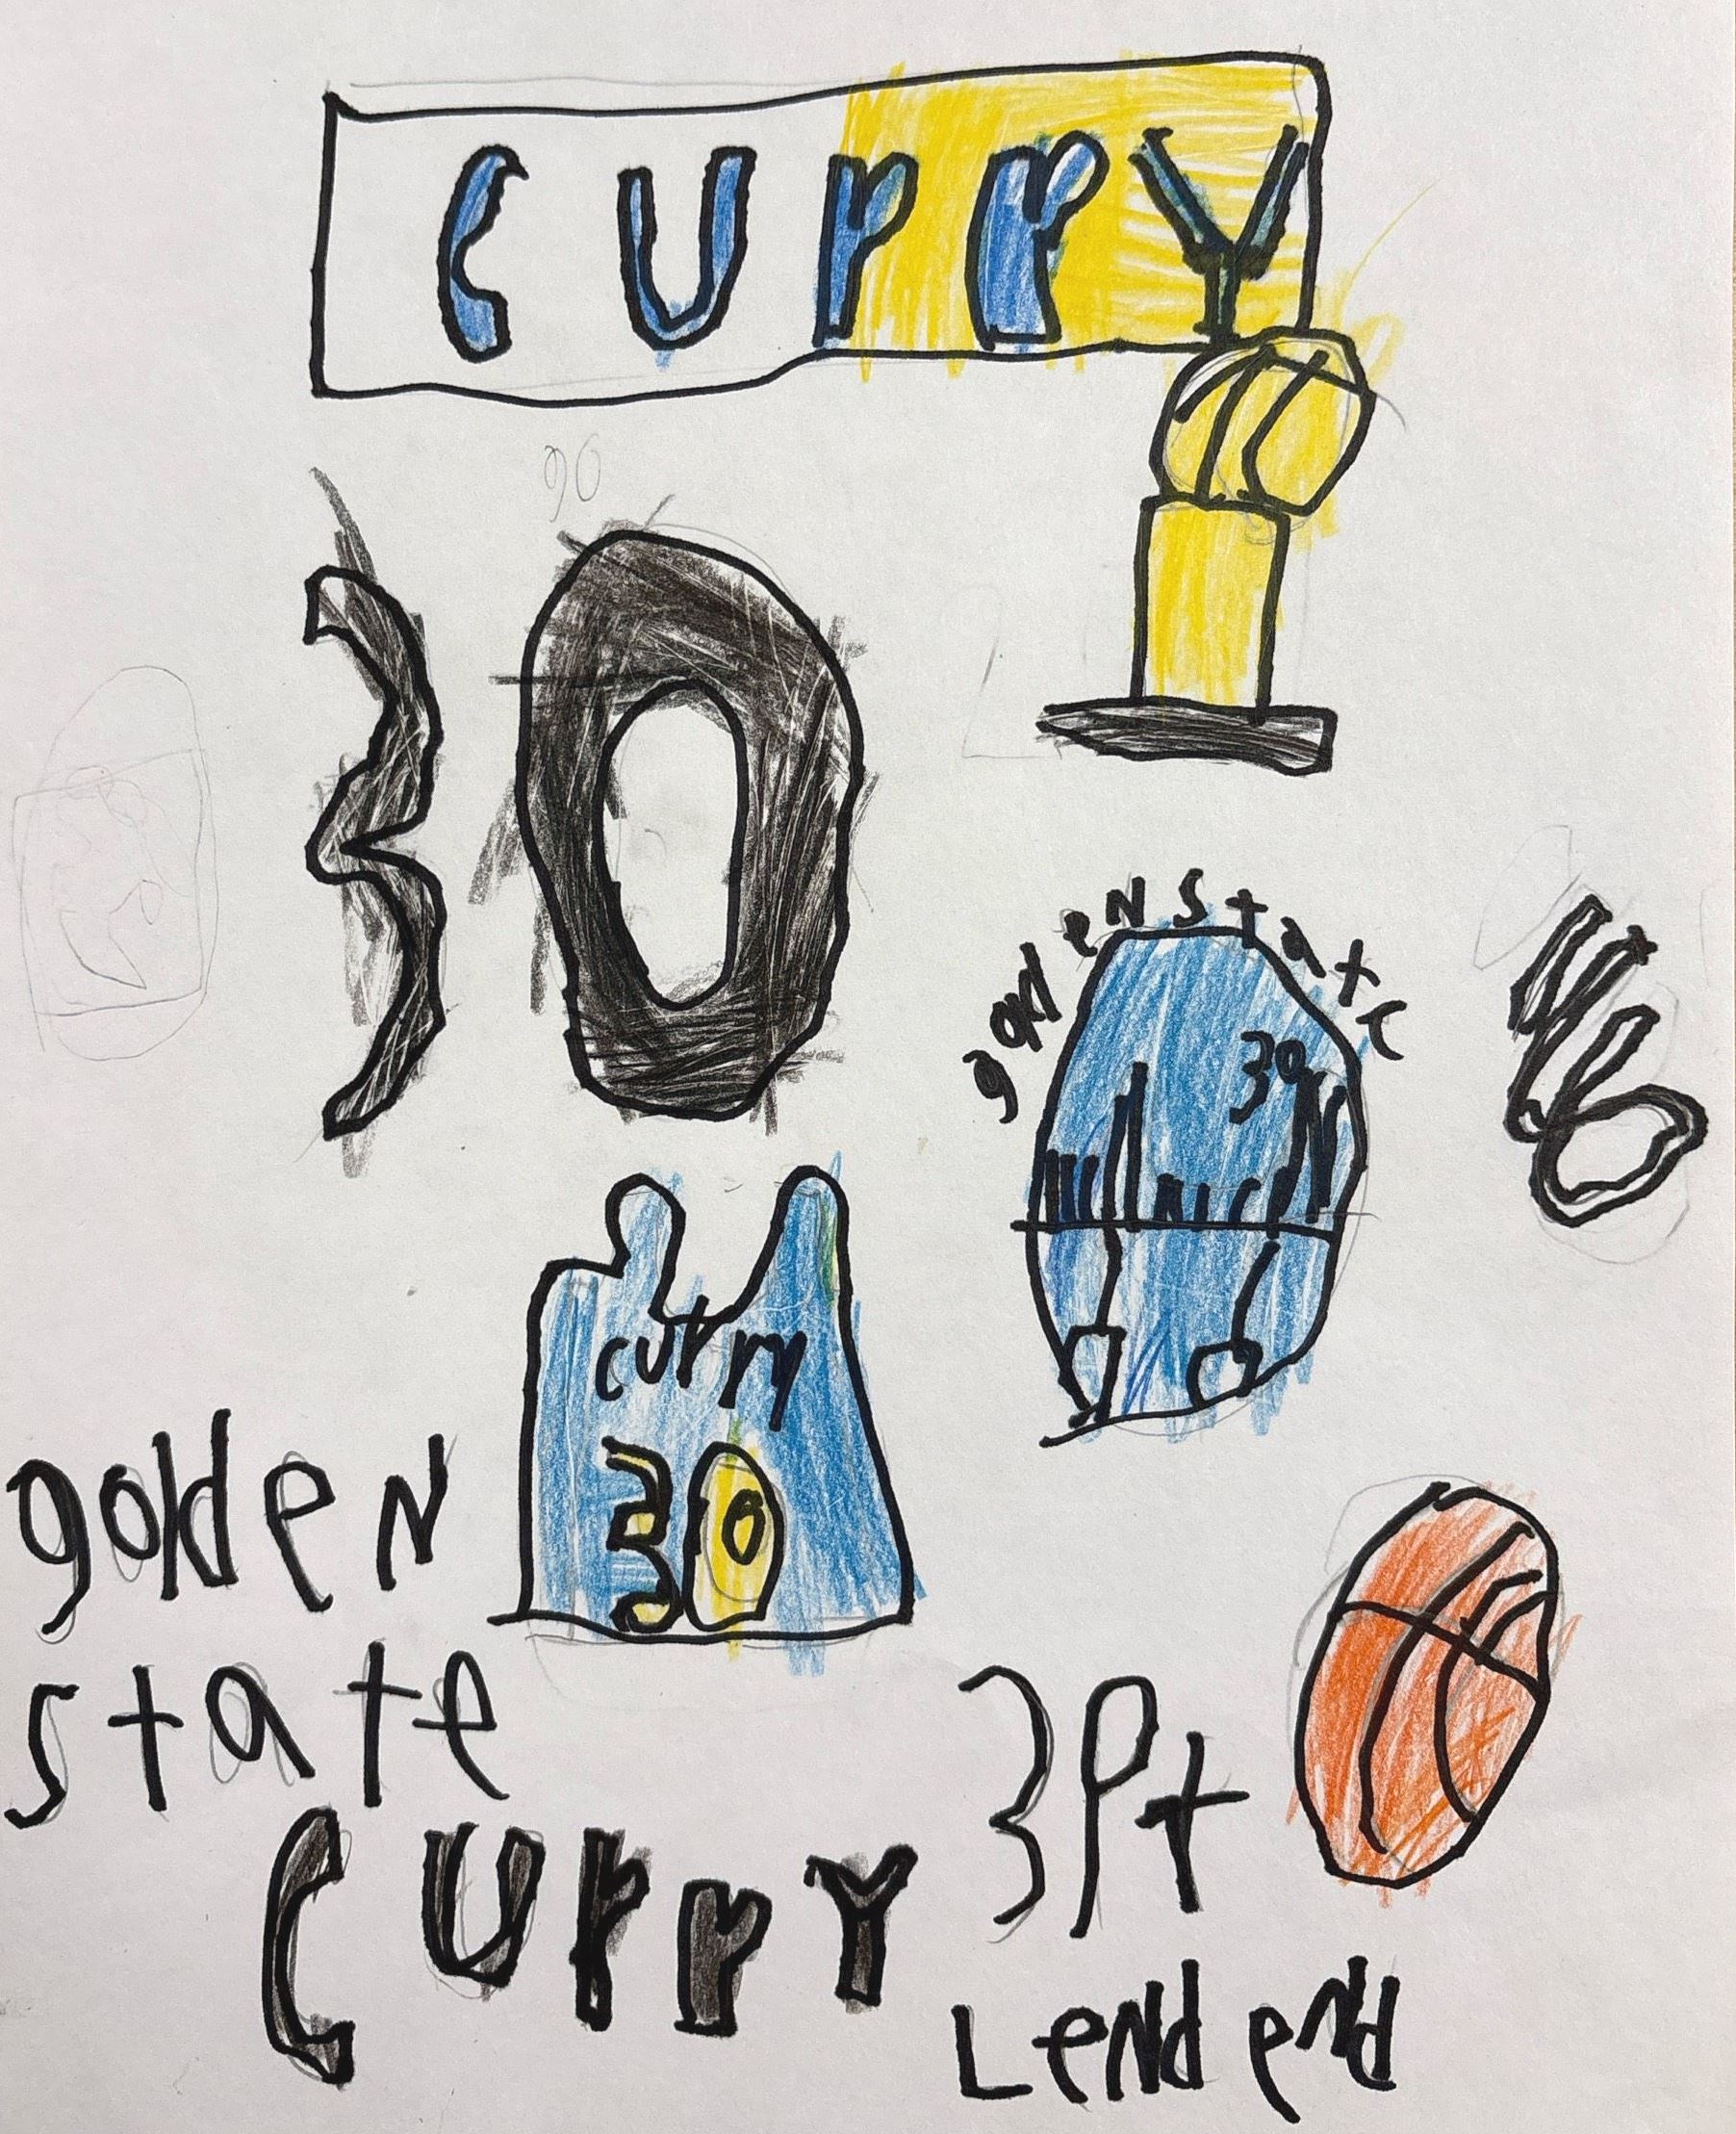 CURRY
30
goldeN State
30
curry
30
goldeN
state
CURRY
3Pt
LeNdeNd